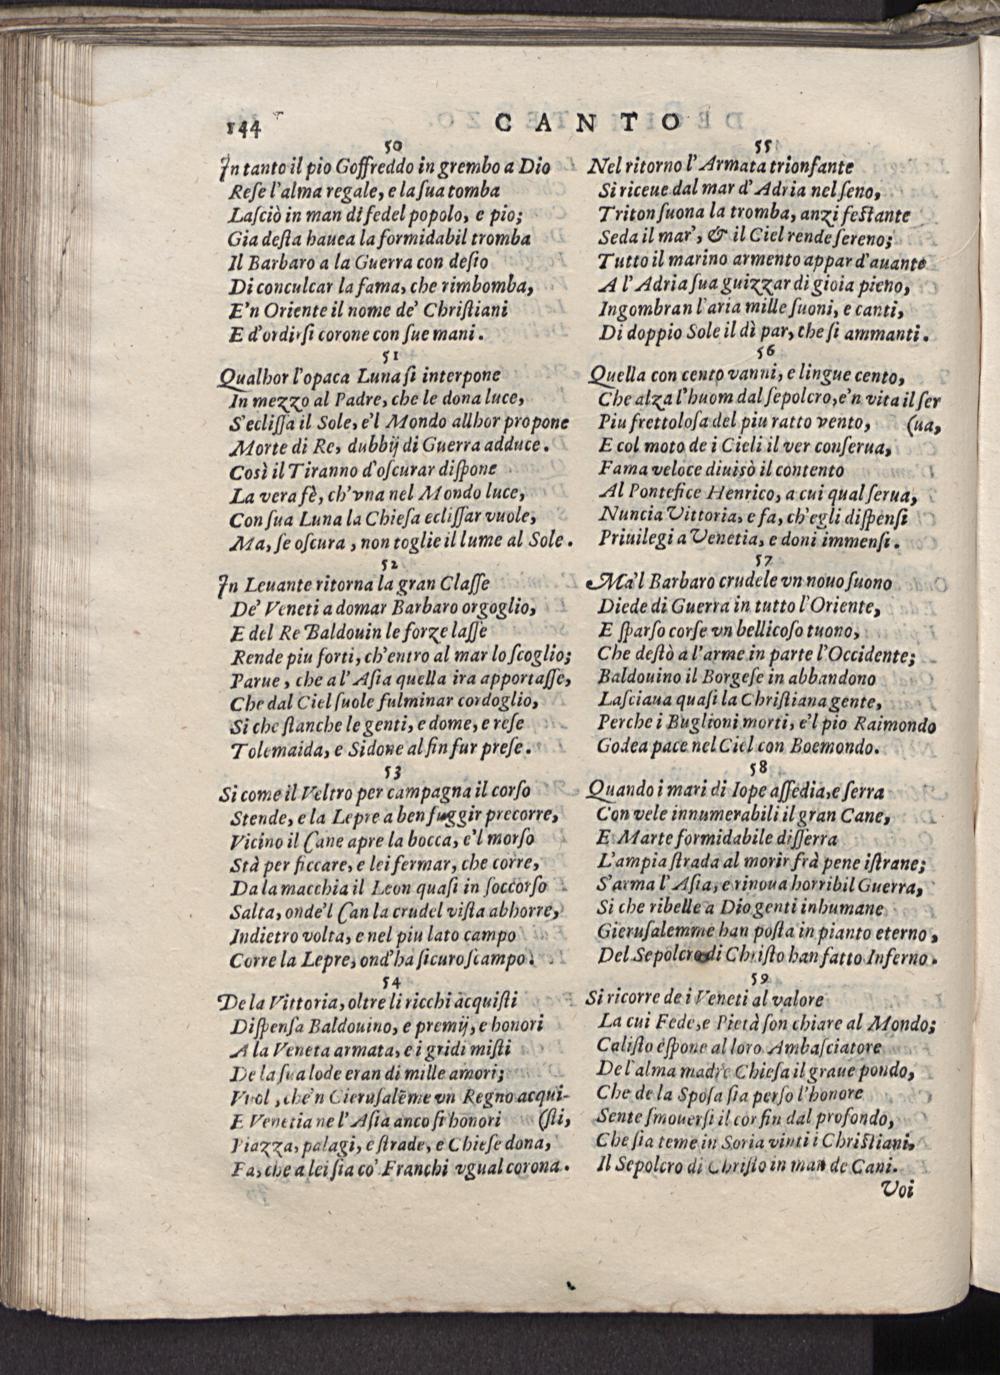 144 CANTO
50
In tanto il pio Goffreddo in grembo a Dio
Reſe l'alma regale, e la ſua tomba
Laſciò in man di fedel popolo, e pio;
Gia deſta hauea la formidabil tromba
Il Barbaro a la Guerra con deſio
Di conculcar la fama, che rimbomba,
E'n Oriente il nome de' Chriſtiani
E d'ordirſi corone con ſue mani.
51
Qualhor l'opaca Luna ſi interpone
In mezzo al Padre, che le dona luce,
S'ecliſſa il Sole, e'l Mondo allhor propone
Morte di Re, dubbij di Guerra adduce.
Così il Tiranno d'oſcurar diſpone
La vera fè, ch'vna nel Mondo luce,
Con ſua Luna la Chieſa ecliſſar vuole,
Ma, ſe oſcura, non toglie il lume al Sole.
52
In Leuante ritorna la gran Claſſe
De' Veneti a domar Barbaro orgoglio,
E del Re Baldouin le forze laſſe
Rende piu forti, ch'entro al mar lo ſcoglio;
Parue, che a l'Aſia quella ira apportaſſe,
Che dal Ciel ſuole fulminar cordoglio,
Si che ſtanche le genti, e dome, e reſe
Tolemaida, e Sidone al fin fur preſe.
53
Si come il Veltro per campagna il corſo
Stende, e la Lepre a ben fuggir precorre,
Vicino il Cane apre la bocca, e'l morſo
Stà per ficcare, e lei fermar, che corre,
Da la macchia il Leon quaſi in ſoccorſo
Salta, onde'l Can la crudel viſta abhorre,
Indietro volta, e nel piu lato campo
Corre la Lepre, ond'ha ſicuro ſcampo.
54
De la Vittoria, oltre li ricchi acquiſti
Diſpenſa Baldouino, e premij, e honori
A la Veneta armata, e i gridi miſti
De la ſua lode eran di mille amori;
Vuol, che'n Gieruſalẽme vn Regno acqui-
E Venetia ne l'Aſia anco ſi honori (ſti,
Piazza, palagi, e ſtrade, e Chieſe dona,
Fa, che a lei ſia co' Franchi vgual corona.
55
Nel ritorno l'Armata trionfante
Si riceue dal mar d'Adria nel ſeno,
Triton ſuona la tromba, anzi feſtante
Seda il mar', & il Ciel rende ſereno;
Tutto il marino armento appar d'auante
A l'Adria ſua guizzar di gioia pieno,
Ingombran l'aria mille ſuoni, e canti,
Di doppio Sole il dì par, che ſi ammanti.
56
Quella con cento vanni, e lingue cento,
Che alza l'huom dal ſepolcro, e'n vita il ſer
Piu frettoloſa del piu ratto vento, (ua,
E col moto de i Cieli il ver conſerua,
Fama veloce diuisò il contento
Al Pontefice Henrico, a cui qual ſerua,
Nuncia Vittoria, e fa, ch'egli diſpenſi
Priuilegi a Venetia, e doni immenſi.
57
Ma'l Barbaro crudele vn nouo ſuono
Diede di Guerra in tutto l'Oriente,
E ſparſo corſe vn bellicoſo tuono,
Che deſtò a l'arme in parte l'Occidente;
Baldouino il Borgeſe in abbandono
Laſciaua quaſi la Chriſtiana gente,
Perche i Buglioni morti, e'l pio Raimondo
Godea pace nel Ciel con Boemondo.
58
Quando i mari di Iope aſſedia, e ſerra
Con vele innumerabili il gran Cane,
E Marte formidabile diſſerra
L'ampia ſtrada al morir frà pene iſtrane;
S'arma l'Aſia, e rinoua horribil Guerra,
Si che ribelle a Dio genti inhumane
Gieruſalemme han poſta in pianto eterno,
Del Sepolcro di Chriſto han fatto Inferno.
59
Si ricorre de i Veneti al valore
La cui Fede, e Pietà ſon chiare al Mondo;
Caliſto eſpone al loro Ambaſciatore
De l'alma madre Chieſa il graue pondo,
Che de la Spoſa ſia perſo l'honore
Sente ſmouerſi il cor fin dal profondo,
Che ſia teme in Soria vinti i Chriſtiani,
Il Sepolcro di Chriſto in man de Cani.
Voi